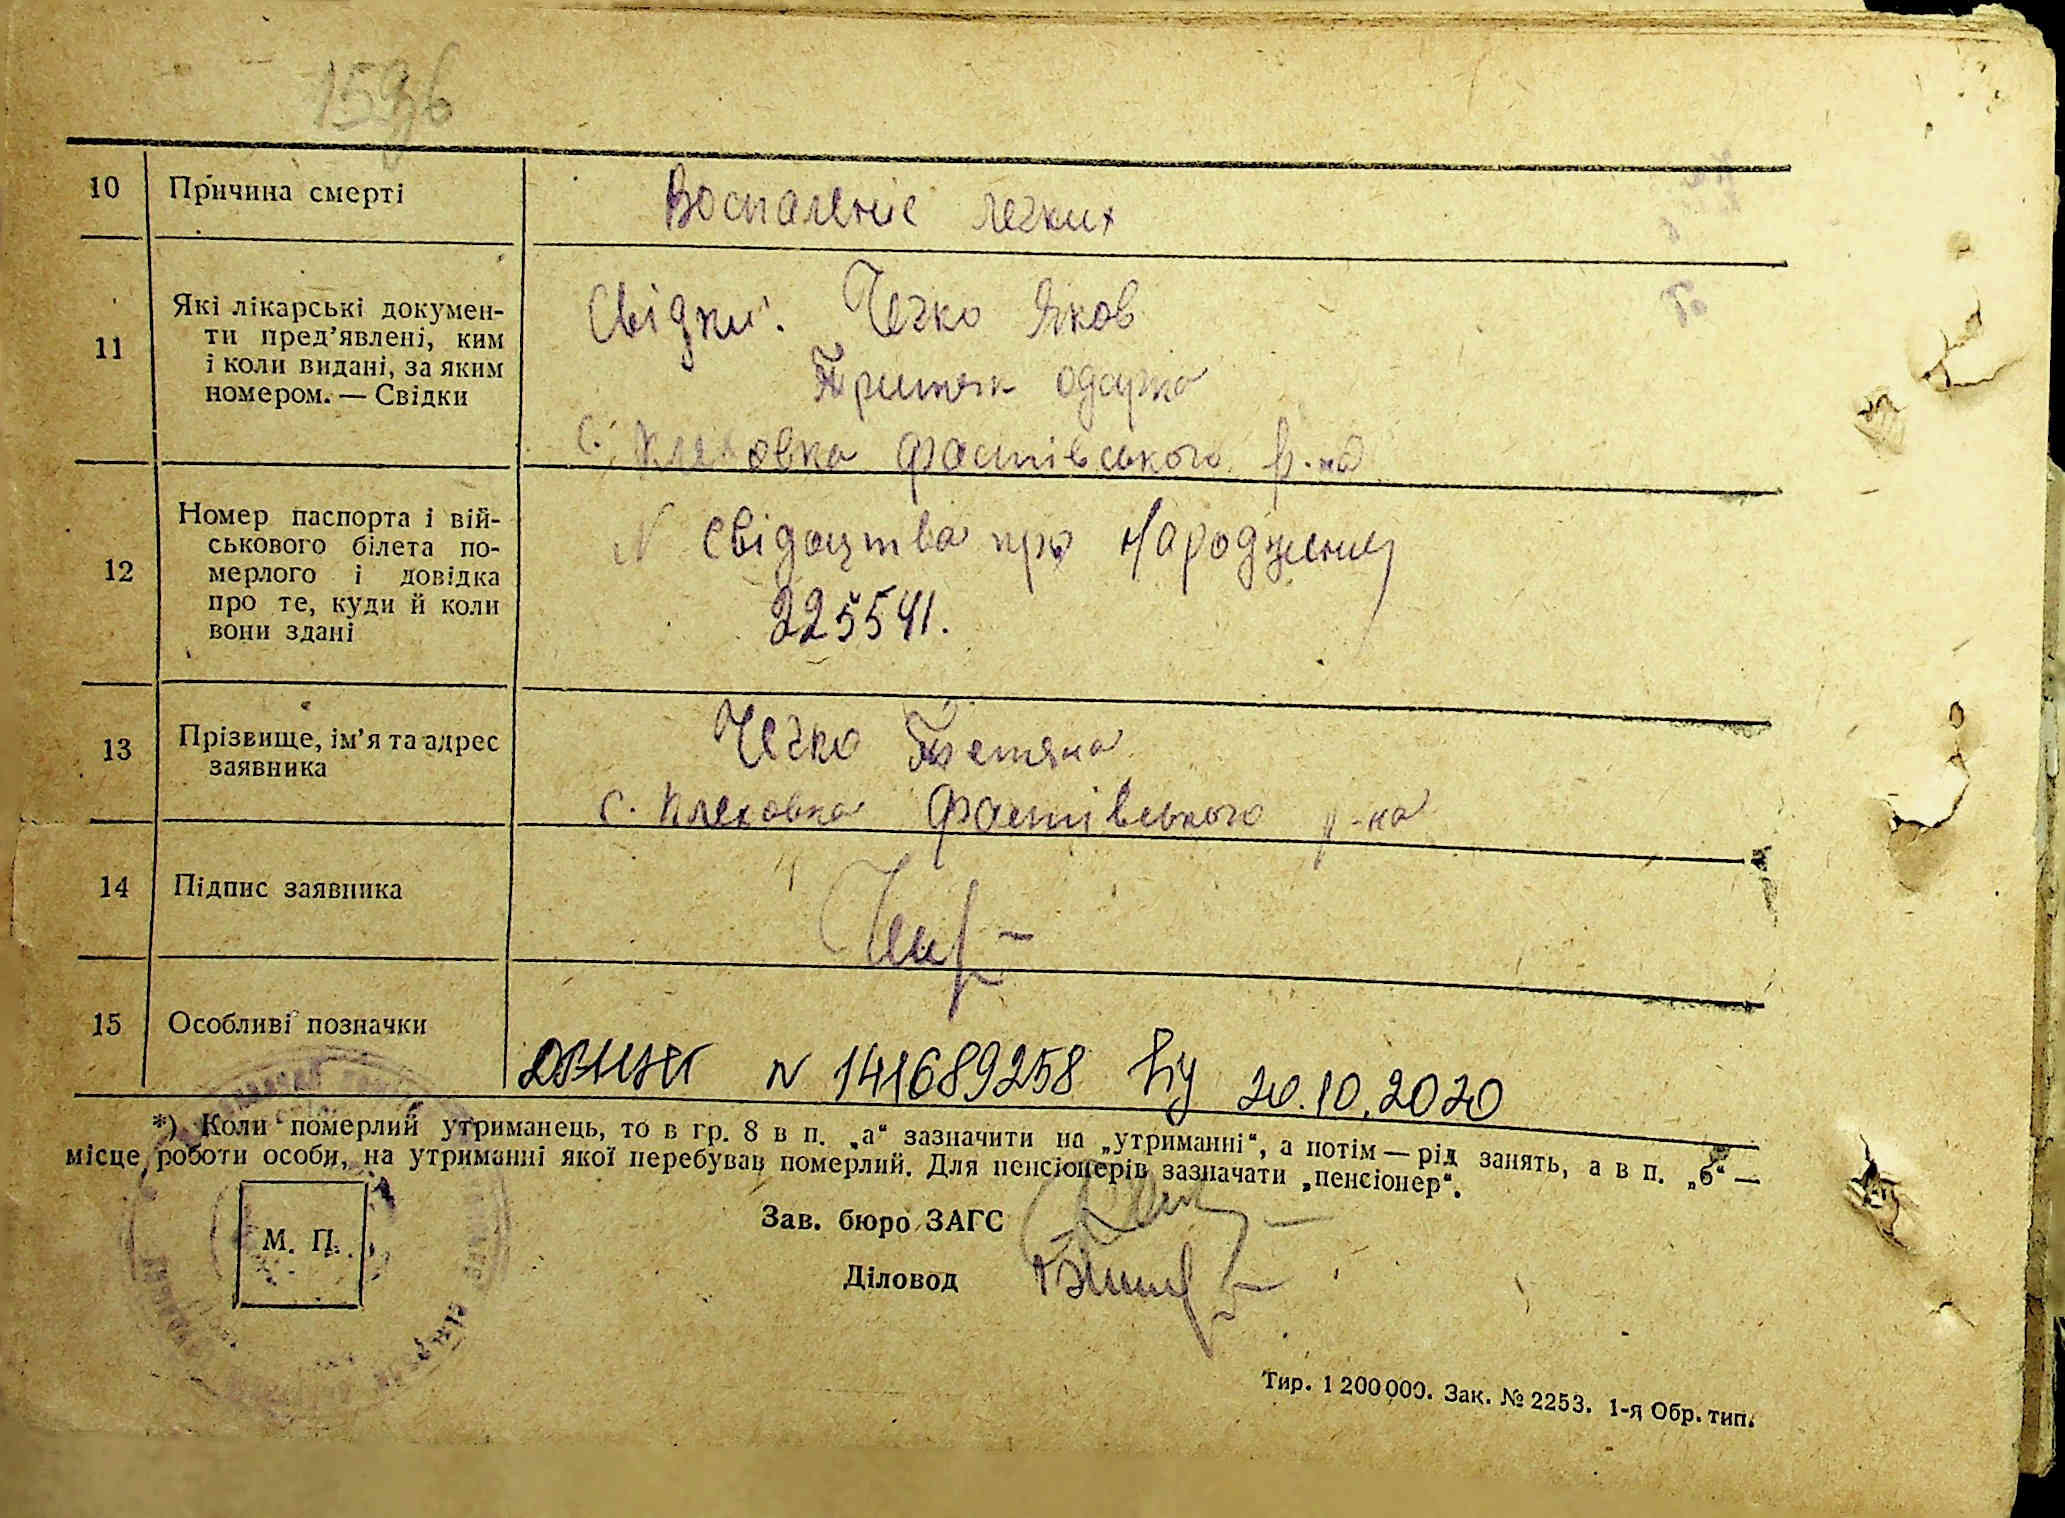 10 Причина смерті Воспаление легких
11 Які лікарські докумен-
ти пред’явлені, ким
і коли видані, за яким
номером. — Свідки
Свідки: Чечко Яков
Одарка
с. Клеховка Фастівського р-на
12 Номер паспорта і вій-
ськового білета по-
мерлого і довідка
про те, куди й коли
вони здані
N свідоцтва про народження
225541.
13 Прізвище, ім’я та адрес
заявника
Чечко Тетяна
с. Клеховка Фастівського р-на
14 Підпис заявника
15 Особливі позначки
N 141689258 від 20.10.2020
*) Коли померлий утриманець, то в гр. 8 в п. „а“ зазначити на „утриманні“, а потім — рід занять, а в п. „б“ —
місце роботи особи, на утриманні якої перебував померлий. Для пенсіонерів зазначати „пенсіонер“.
М. П.
Зав. бюро ЗАГС
Діловод
Тир. 1 200 000. Зак. № 2253. 1-я Обр. тип.